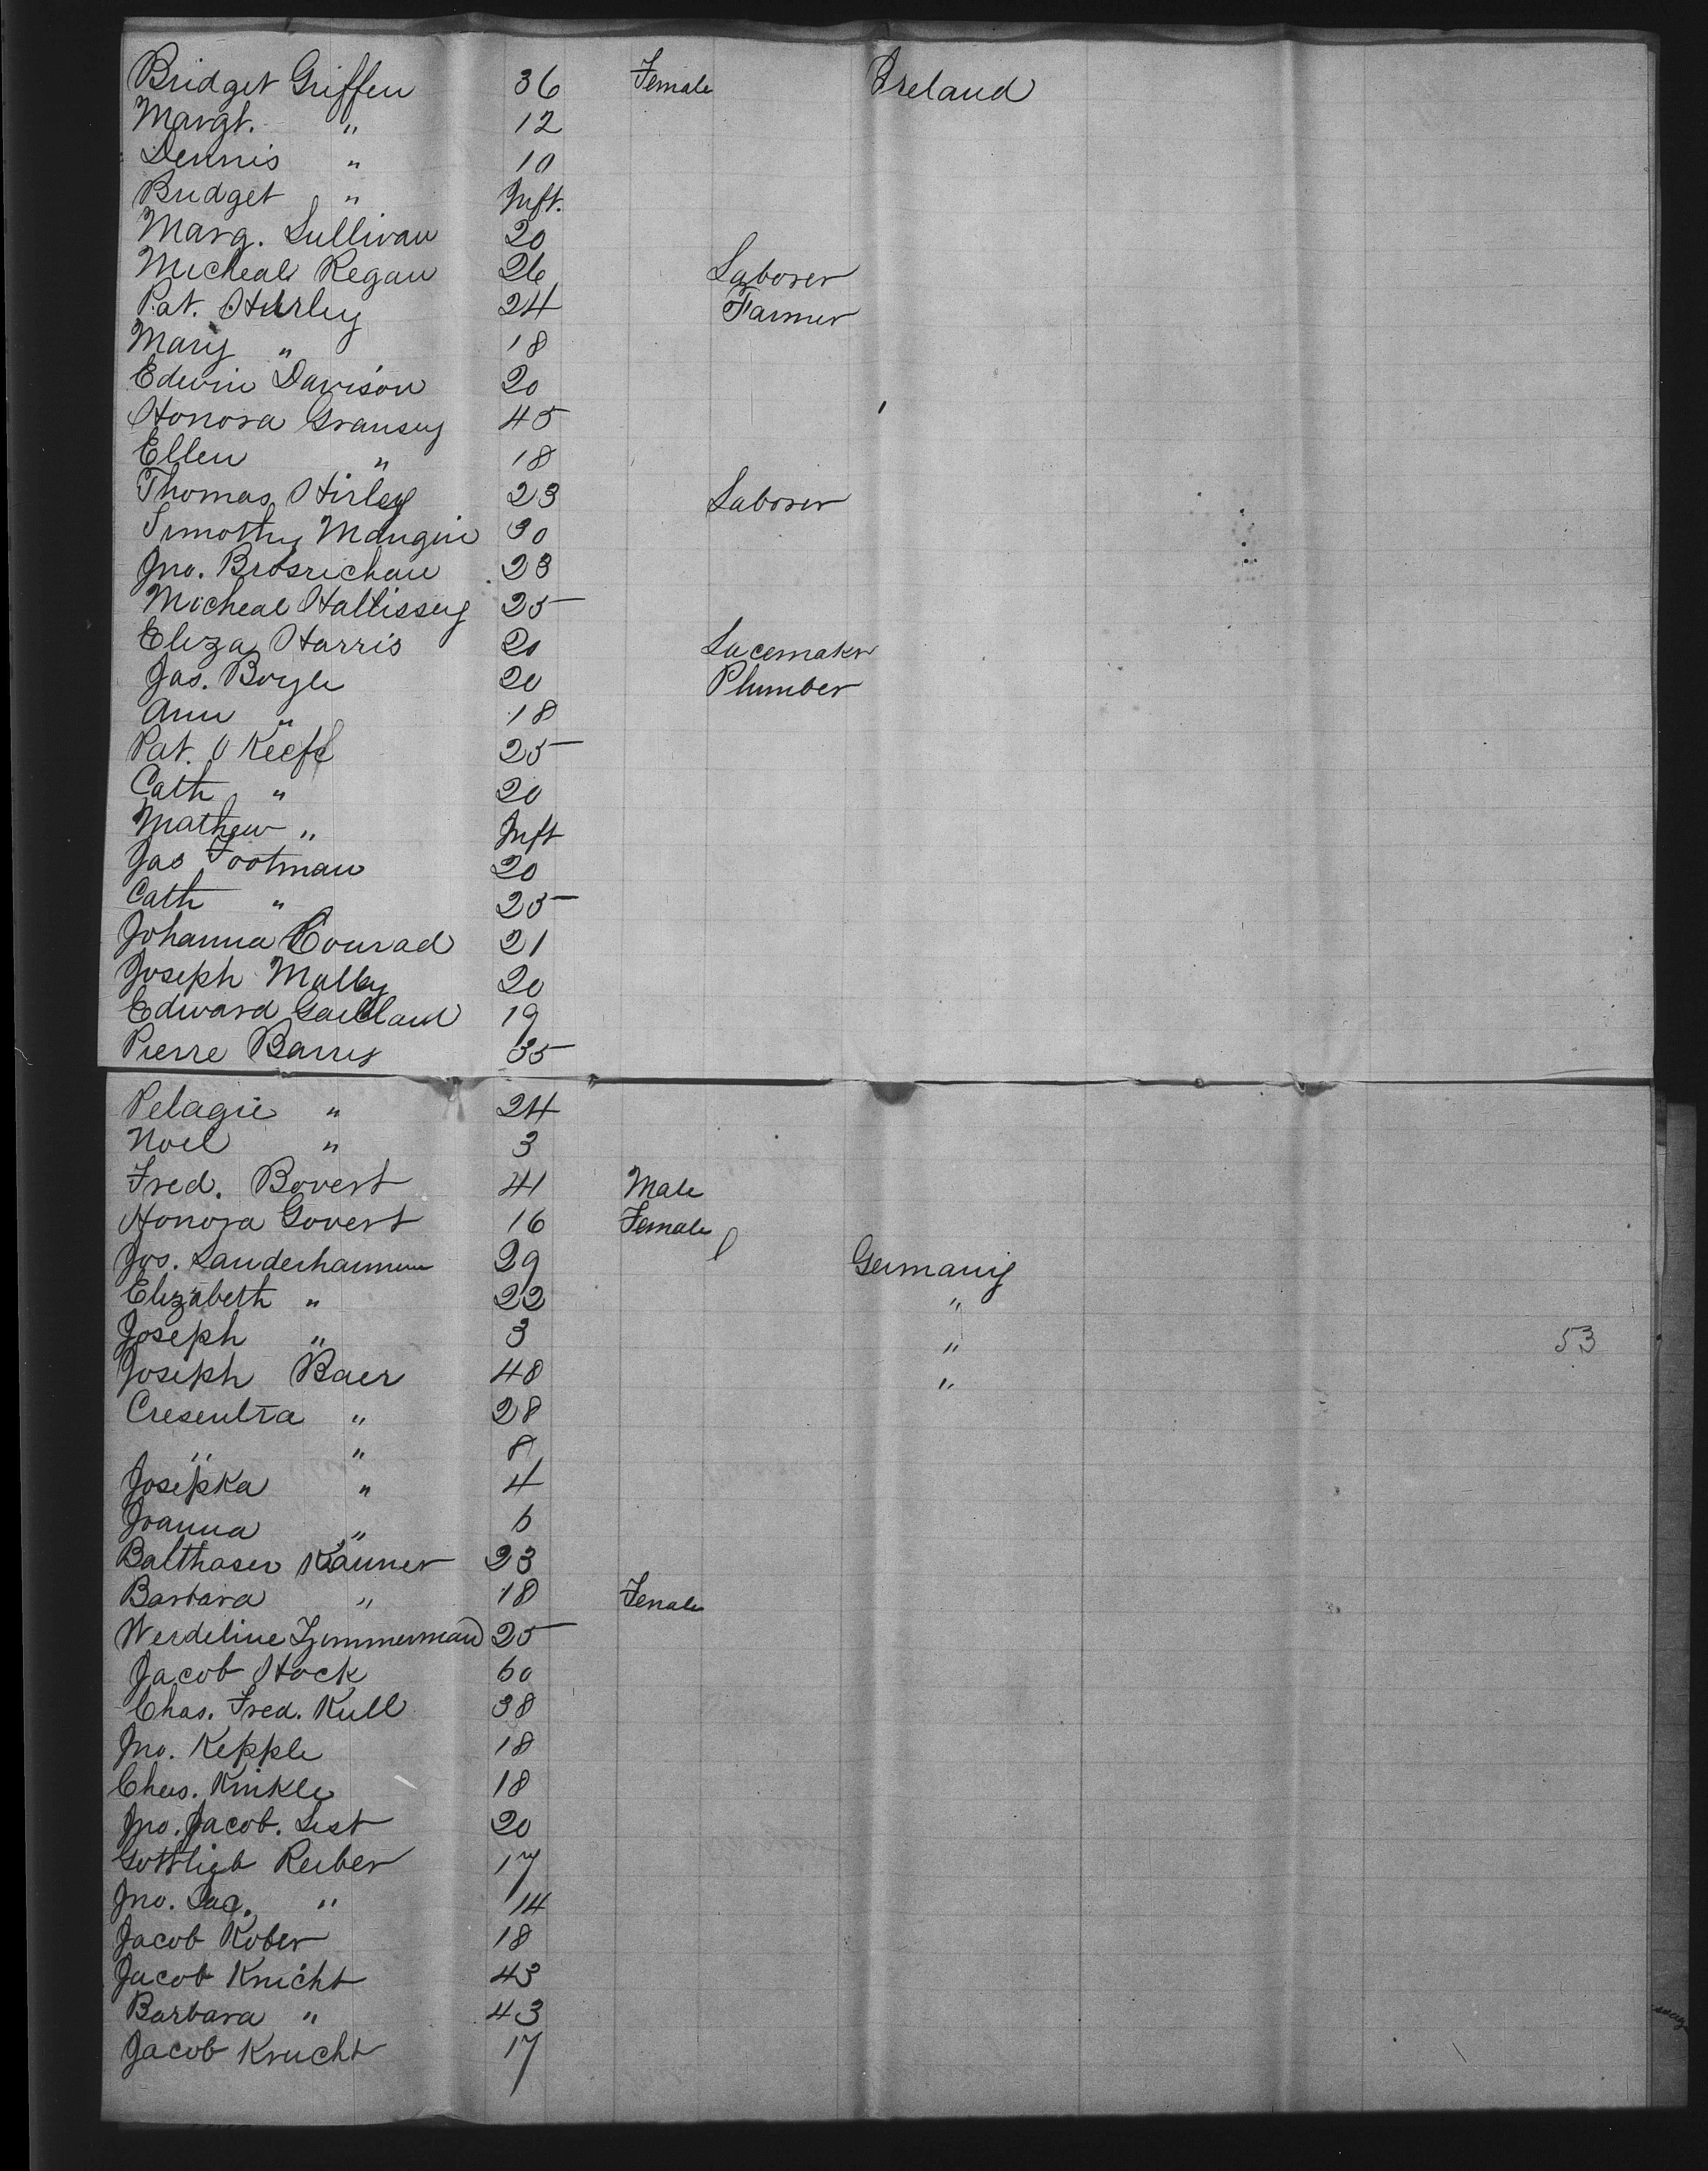 Bridget Griffen 36 Female Ireland
Margt. " 12
Dennis " 10
Bridget " Inft.
Marg. Sullivan 20
Micheal Regan 26 Laborer
Pat. Hurley 24 Farmer
Mary " 18
Edwin Davison 20
Honora Gransey 45
Ellen " 18
Thomas Hirley 23 Laborer
Timothy Mangin 30
Jno. Brosrichan 23
Micheal Hallissey 25
Eliza Harris 20 Lacemaker
Jas. Boyle 20 Plumber
Ann " 18
Pat. O Keefe 25
Cath " 20
Mathew " Inft
Jas Footman 20
Cath " 25
Johanna Conrad 21
Joseph Malley 20
Edward 19
Pierre Barry 35
Pelagie " 24
Noel " 3
Fred. Bovert 41 Male
Honora Govert 16 Female
Jos. Landerhammen 29 Germany
Elizabeth " 22 "
Joseph " 3 " 53
Joseph Baer 48 "
Cresentia " 28
" " 8
Josepka " 4
Joanna " 6
Balthaser Kauner 23
Barbara " 18 Female
Werdeline Zimmerman 25
Jacob Hock 60
Chas. Fred. Kull 38
Jno. Kepple 18
Chas. Kinkle 18
Jno. Jacob. List 20
Gottlieb Reiber 17
Jno. Jac. " 14
Jacob Kober 18
Jacob Knicht 43
Barbara " 43
Jacob Knucht 17